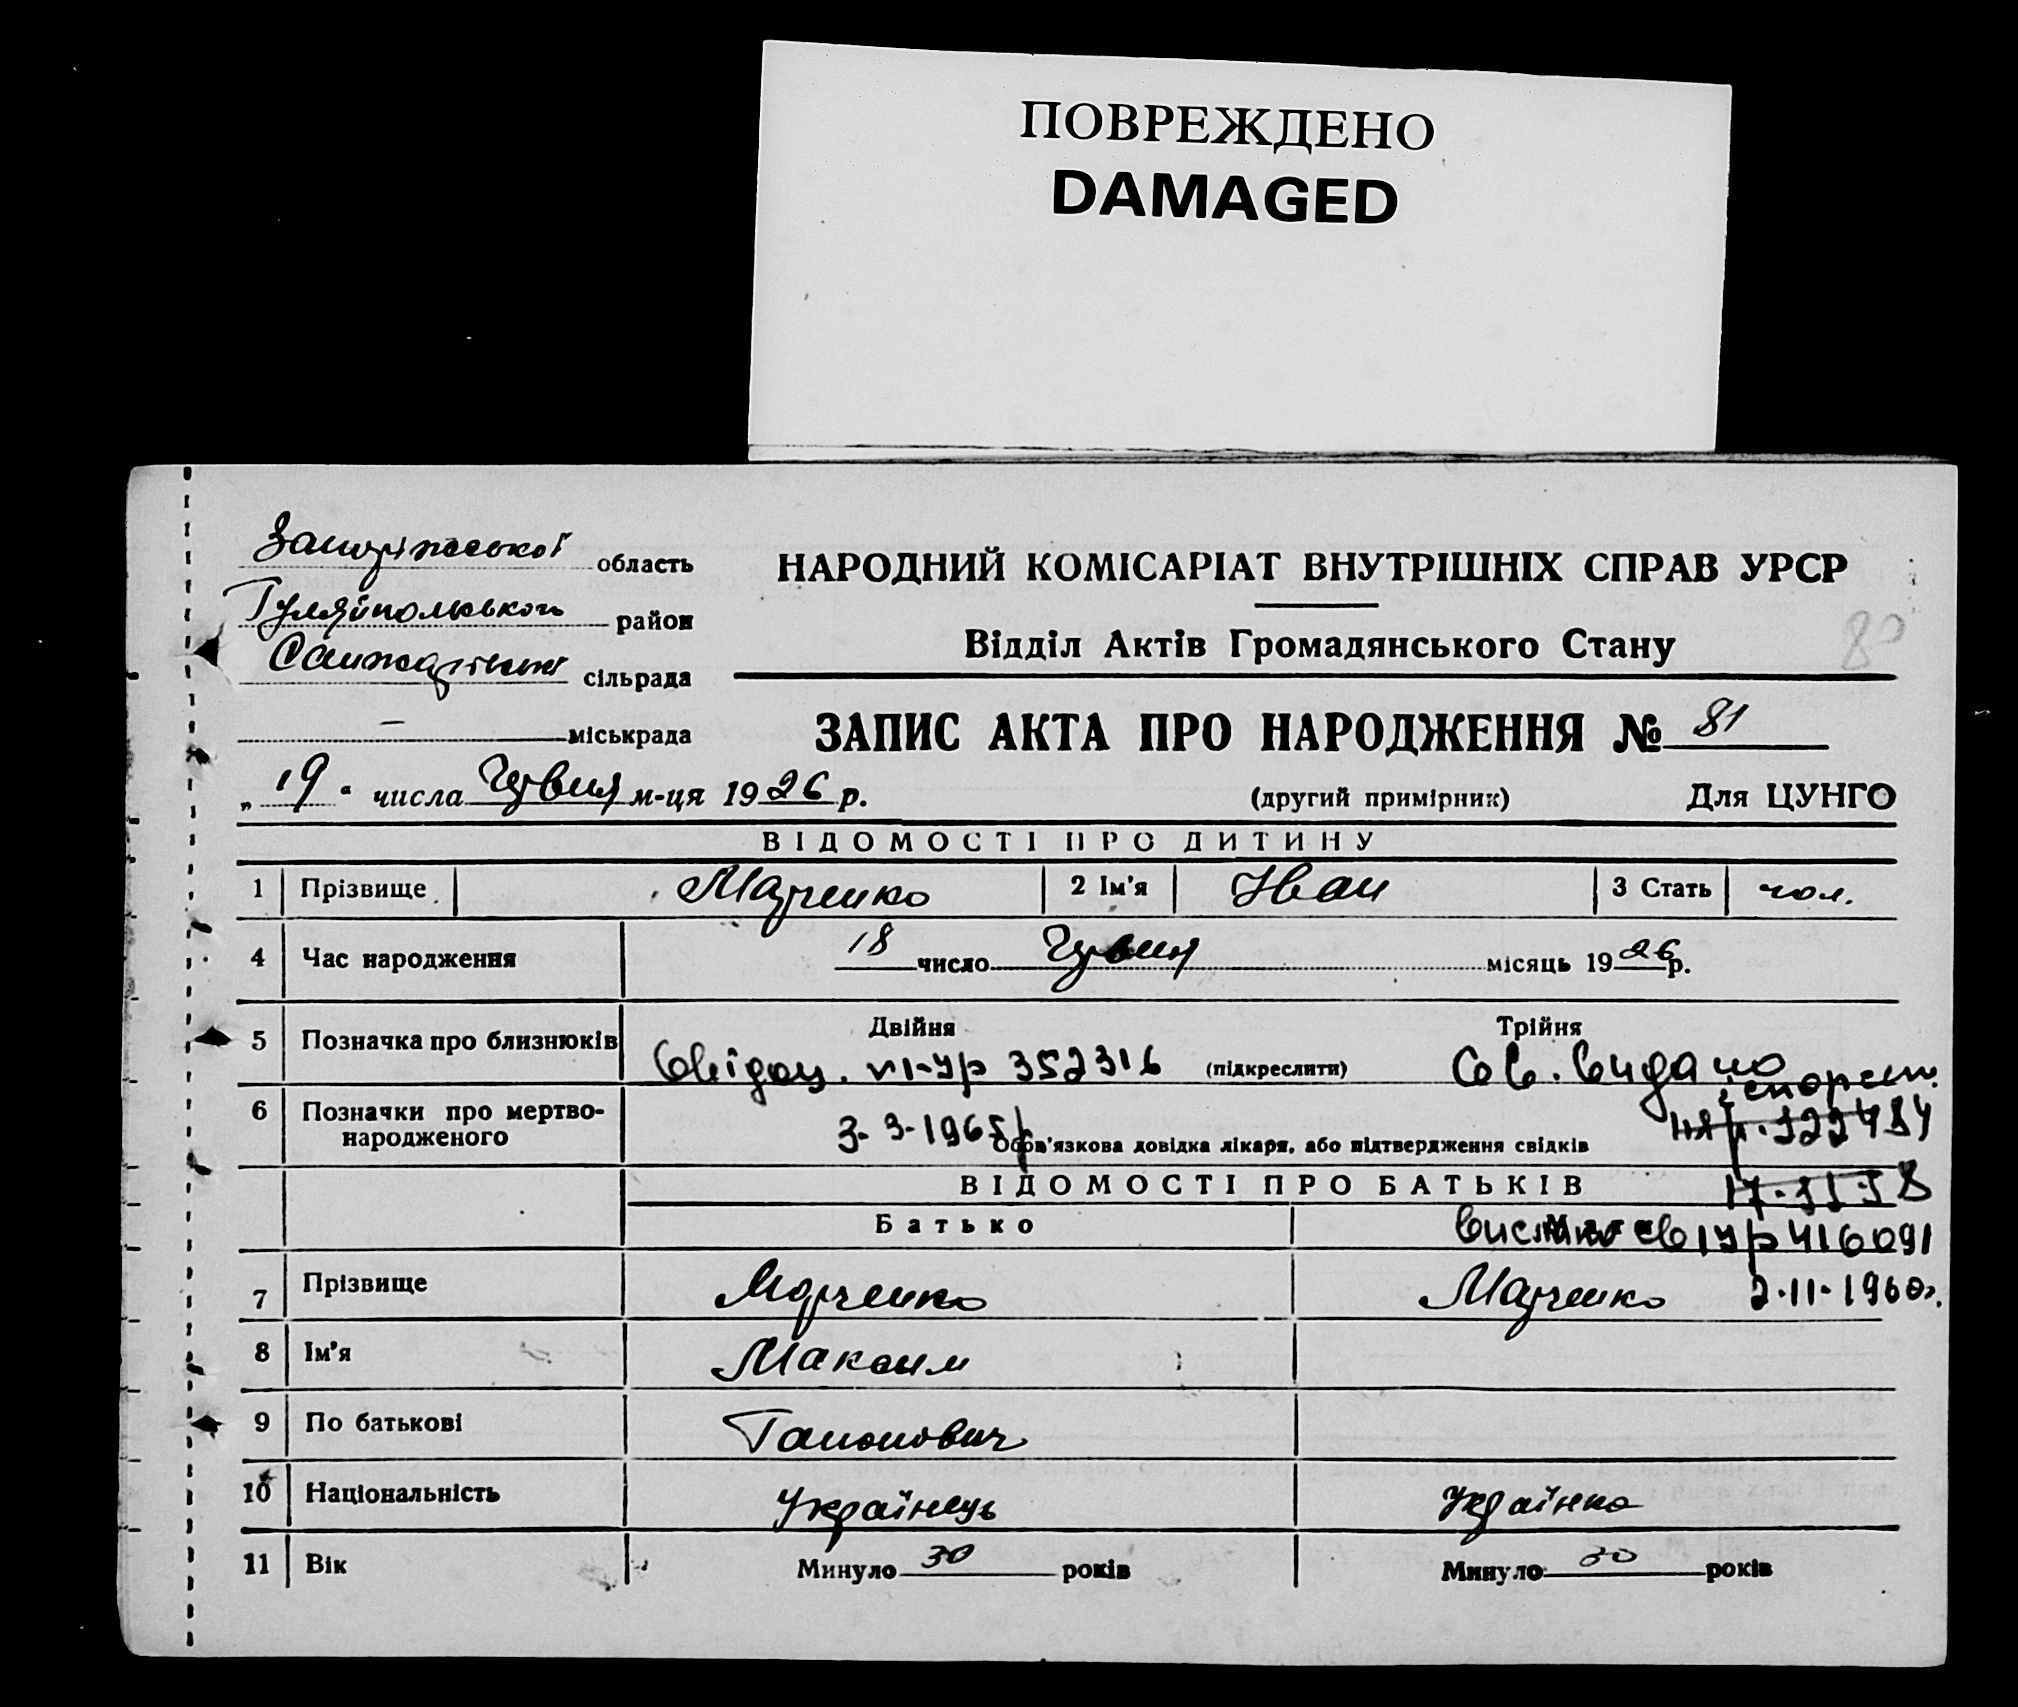 ПОВРЕЖДЕНО
DAMAGED
Запоріжської область
Гуляйпольського район
сільрада
— міськрада
НАРОДНИЙ КОМІСАРІАТ ВНУТРІШНІХ СПРАВ УРСР
Відділ Актів Громадянського Стану
80
ЗАПИС АКТА ПРО НАРОДЖЕННЯ № 81
„19“ числа Червня м-ця 1926 р.
(другий примірник) Для ЦУНГО
ВІДОМОСТІ ПРО ДИТИНУ
1 Прізвище Марченко 2 Ім'я Іван 3 Стать чол.
4 Час народження 18 число Червня місяць 1926 р.
5 Позначка про близнюків Двійня Трійня
Свідоц. УР 352316 (підкреслити) Св. видано
6 Позначки про мертвонародженого
3-3-1965р
Обов'язкова довідка лікаря, або підтвердження свідків
ВІДОМОСТІ ПРО БАТЬКІВ
Батько Мати
УР 416091
7 Прізвище Марченко Марченко 2-11-1960р.
8 Ім'я Максим
9 По батькові Гапонович
10 Національність Українець Українка
11 Вік Минуло 30 років Минуло 30 років